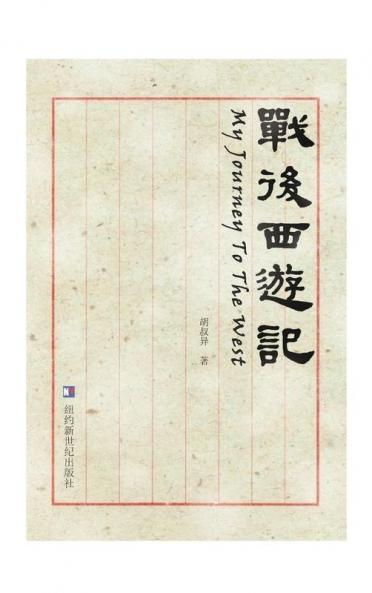 戰後西遊記
My Journey To The West
胡叔异 著
纽约新世纪出版社